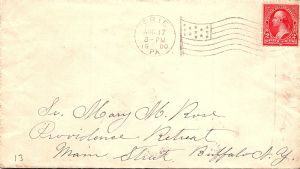 ERIE
AUG 17
8-PM
1900
PA.
Sr. Mary M. Rose
Providence Retreat
Main Street Buffalo N.Y.
13